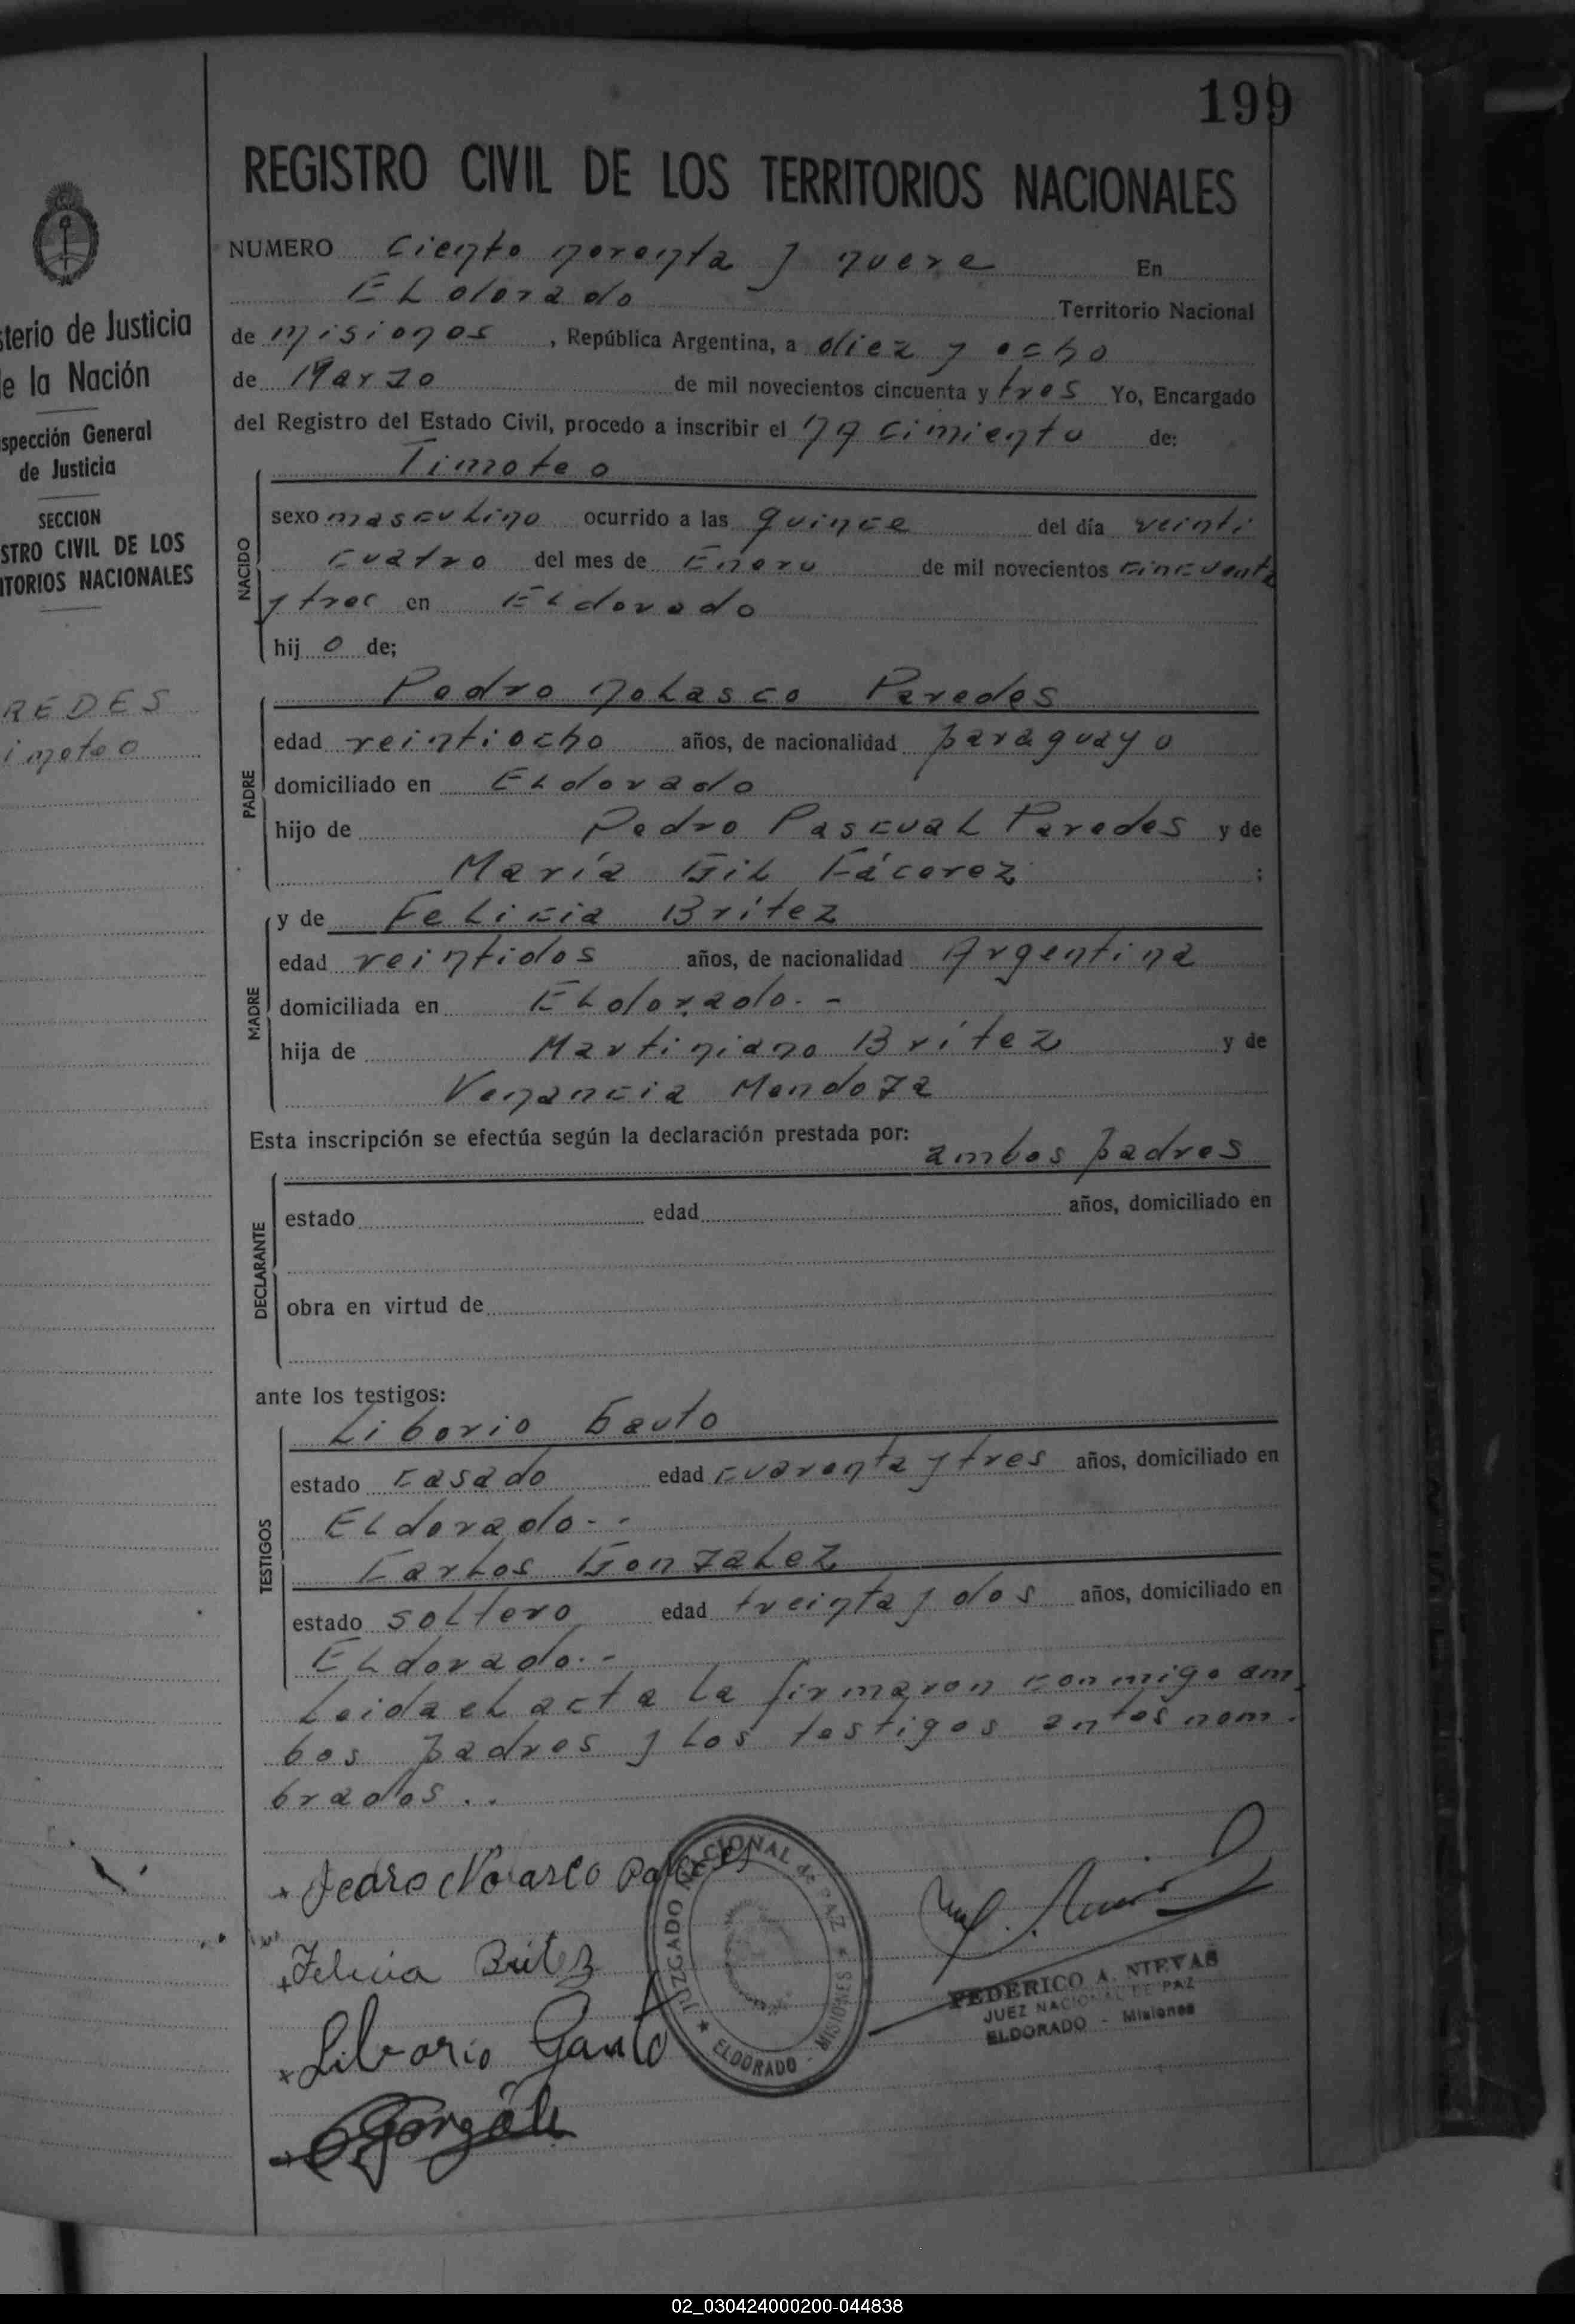 199
REGISTRO CIVIL DE LOS TERRITORIOS NACIONALES
NUMERO ciento noventa y nueve En
ELdorado Territorio Nacional
de misiones, República Argentina, a diez y ocho
de Marzo de mil novecientos cincuenta y tres Yo, Encargado
del Registro del Estado Civil, procedo a inscribir el nacimiento de:
Timoteo
NACIDO
sexo masculino ocurrido a las quince del día veinti
cuatro del mes de Enero de mil novecientos cincuenta
y tres en ELdorado
hijo de;
PADRE
Pedro noLasco Paredes
edad veintiocho años, de nacionalidad paraguayo
domiciliado en ELdorado
hijo de Pedro PascuaL Paredes y de
María GiL Cácerez ;
MADRE
y de FeLicia Brítez
edad veintidos años, de nacionalidad Argentina
domiciliada en ELdorado.-
hija de Martiniano Brítez y de
Venancia Mendoza
Esta inscripción se efectúa según la declaración prestada por:
ambos padres
DECLARANTE
estado edad años, domiciliado en
obra en virtud de
ante los testigos:
TESTIGOS
Liborio Gauto
estado casado edad cuarenta y tres años, domiciliado en
ELdorado.-
CarLos GonzaLez
estado soLtero edad treinta y dos años, domiciliado en
ELdorado.-
Leida eL acta La firmaron conmigo am
bos padres y Los testigos antes nom.
brados..
Pedro Nolasco Paredes
Felicia Britez
Liborio Gauto
JUZGADO NACIONAL de PAZ
ELDORADO - MISIONES
FEDERICO A. NIEVAS
JUEZ NACIONAL DE PAZ
ELDORADO - Misiones
sterio de Justicia
e la Nación
spección General
de Justicia
SECCION
STRO CIVIL DE LOS
ITORIOS NACIONALES
REDES
imoteo
02_030424000200-044838